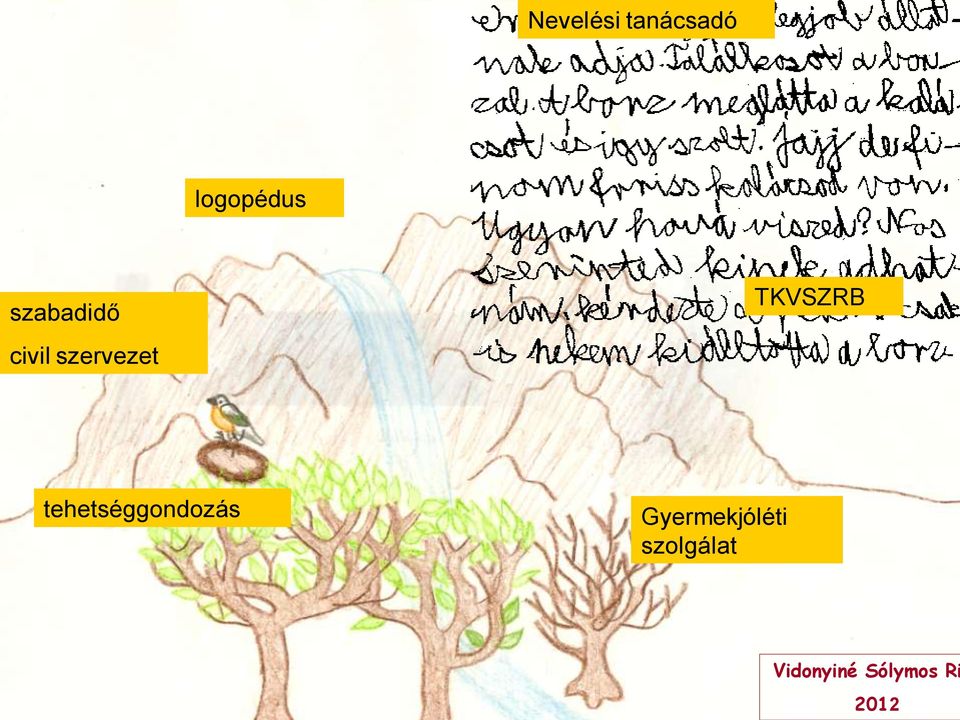 Nevelési tanácsadó
legjob állat-
nak adja Találkosot a bor-
zal. A borz meglátta a kalá
csot és igy szolt. Jajj de fi-
nom friss kalácsod von.
Ugyan hová viszed? Nos
szeninted kinek adhat
nám. kérdezte a
csak
is nekem kiáltotta a borz
logopédus
TKVSZRB
szabadidő
civil szervezet
tehetséggondozás
Gyermekjóléti
szolgálat
Vidonyiné Sólymos Ri
2012